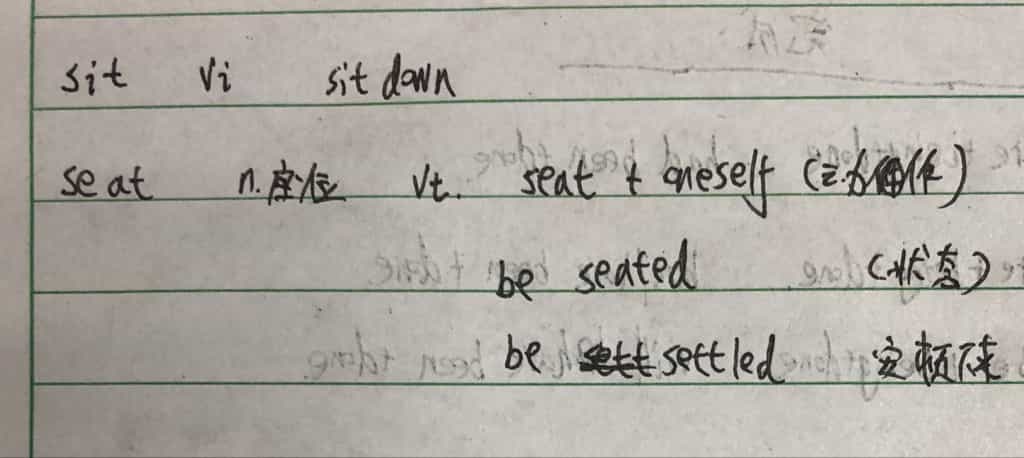 sit vi sit down
seat n.座位 vt. seat + oneself (动作)
be seated (状态)
be settled 安顿下来